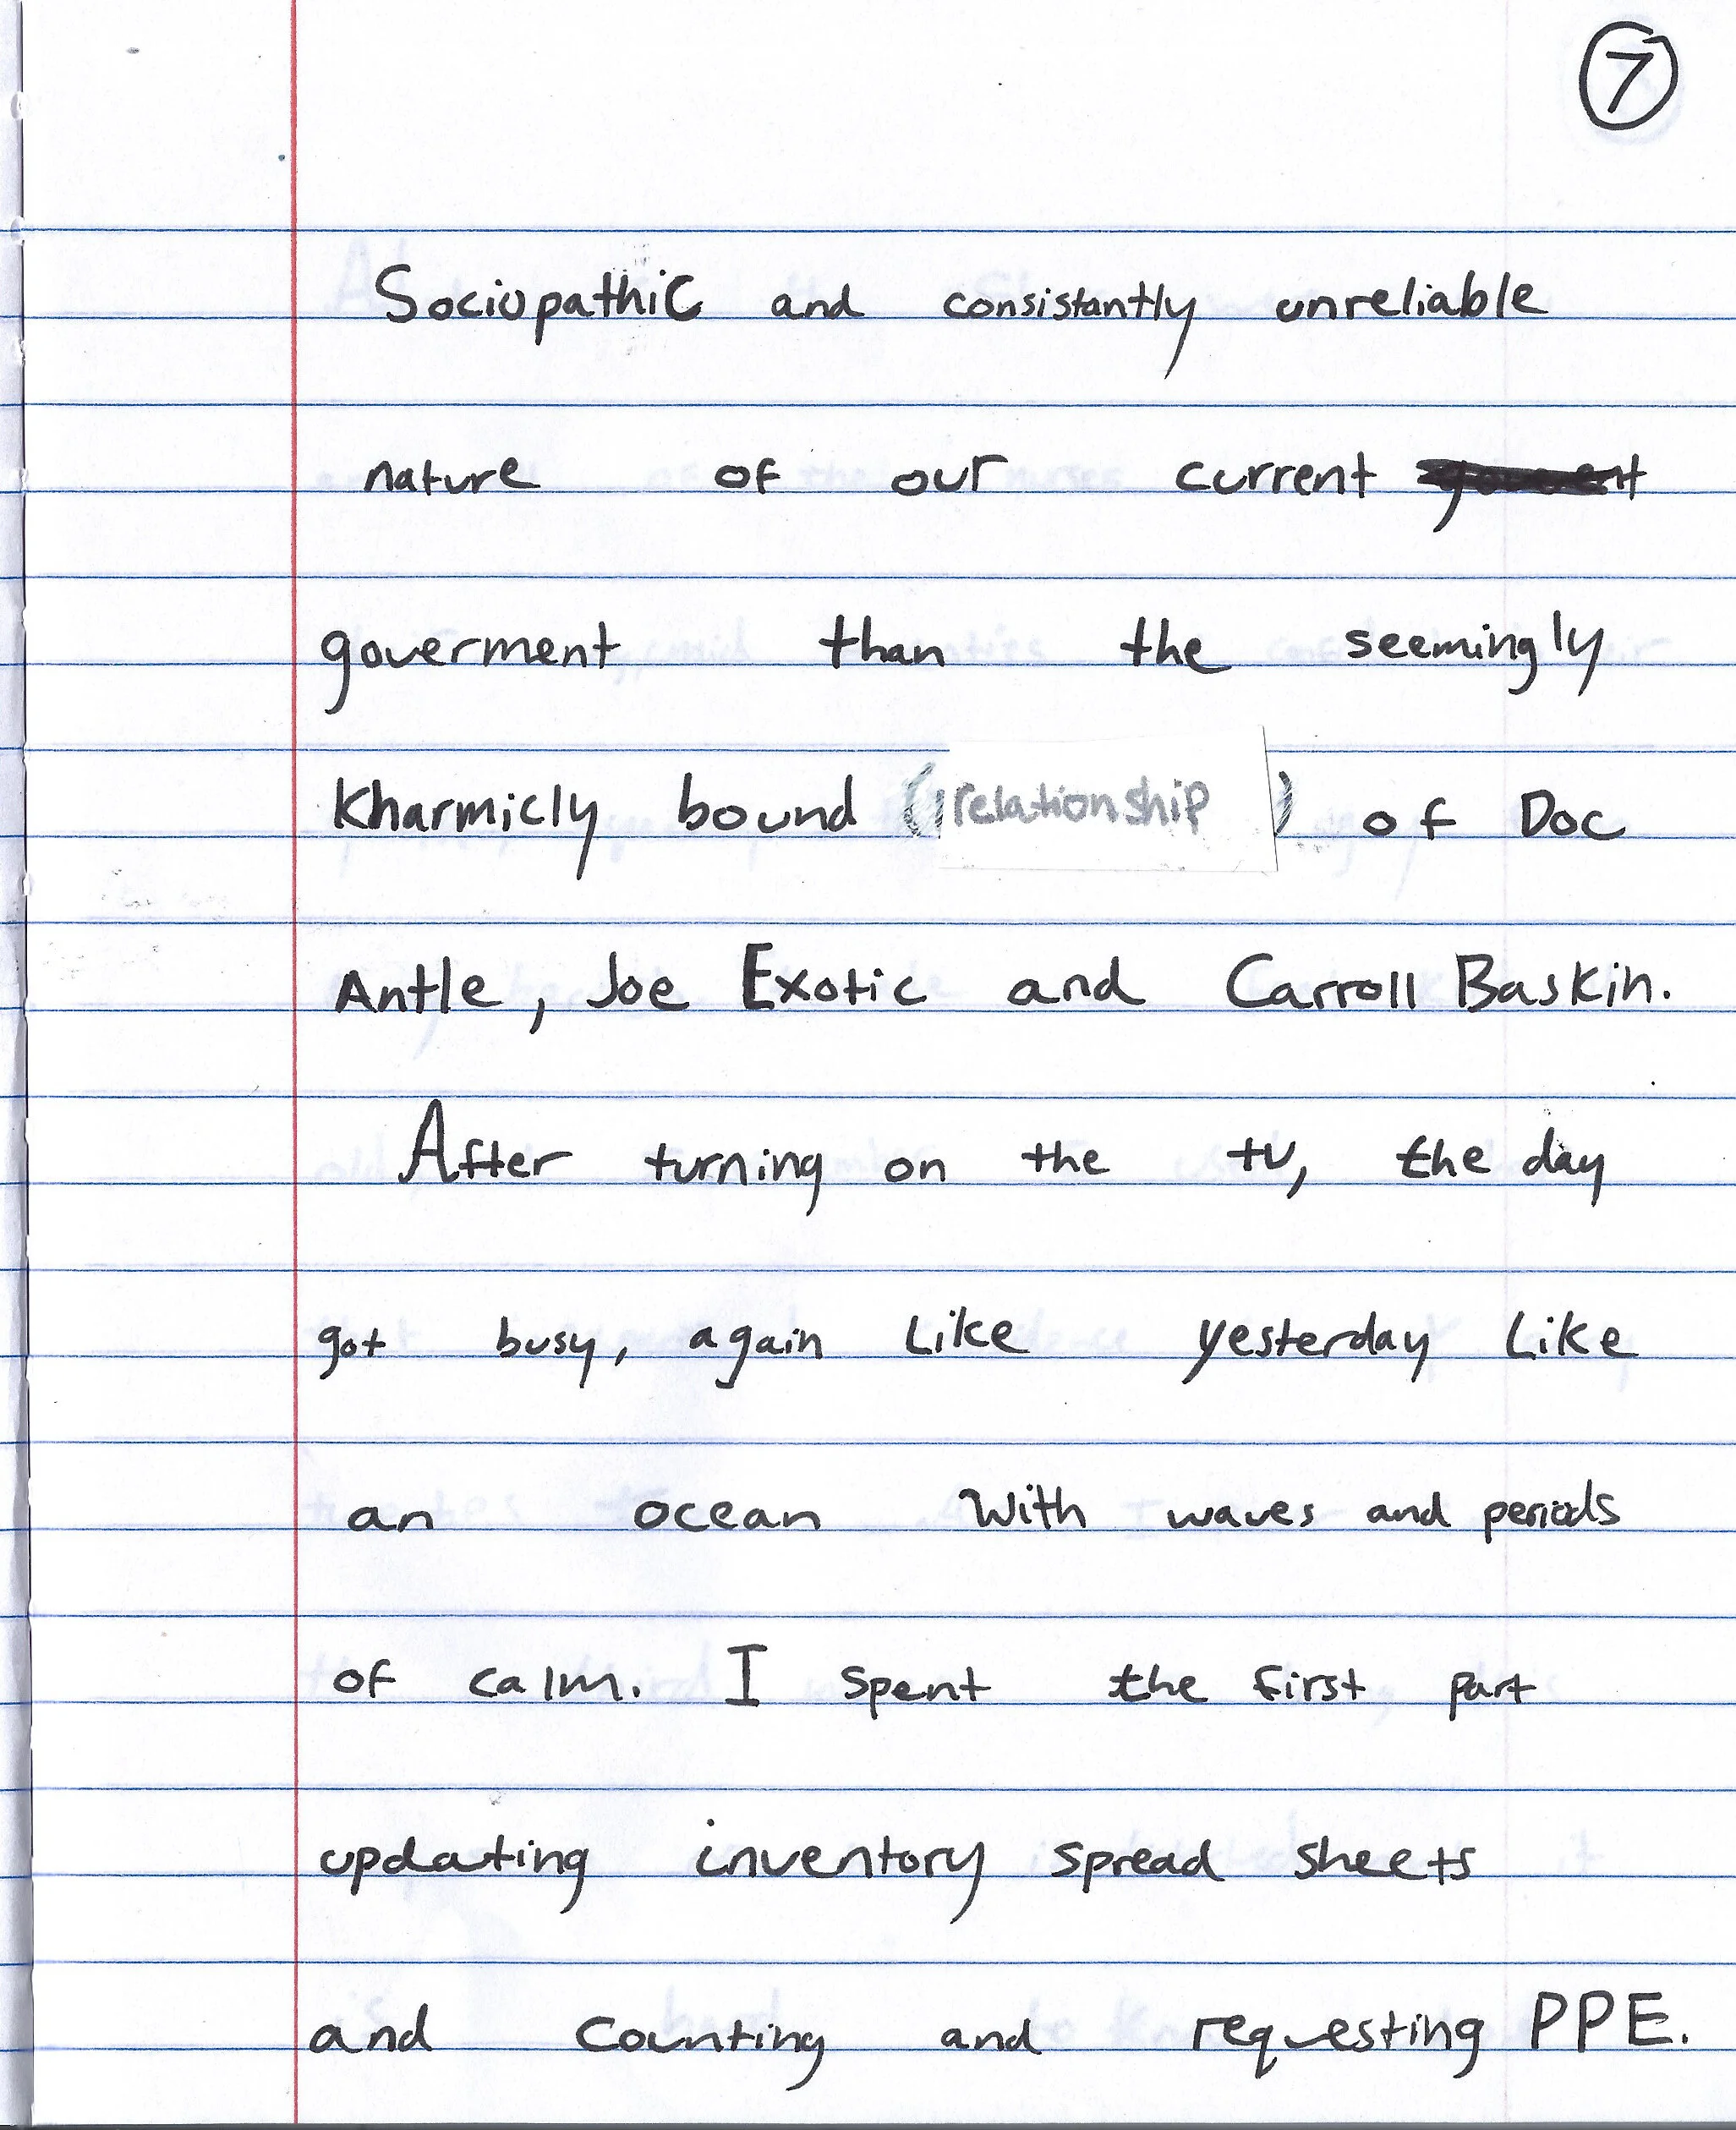 7
Sociopathic and consistantly unreliable
nature of our current
goverment than the seemingly
Kharmicly bound (relationship) of Doc
Antle, Joe Exotic and Carroll Baskin.
After turning on the tv, the day
got busy, again like yesterday like
an ocean with waves and periods
of calm. I spent the first part
updating inventory spread sheets
and counting and requesting PPE.